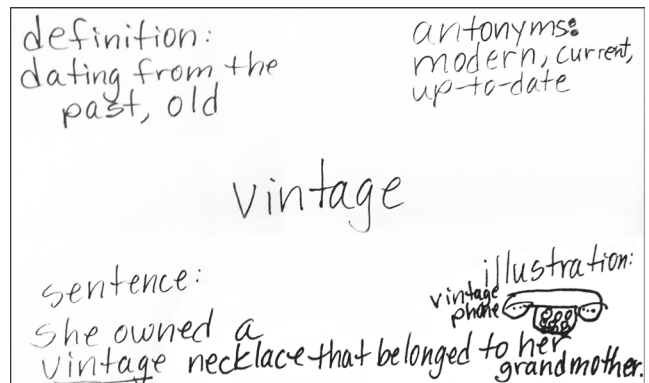 definition:
dating from the
past, old
antonyms:
modern, current,
up-to-date
vintage
sentence:
she owned a
vintage necklace that belonged to her
grandmother.
illustration:
vintage
phone